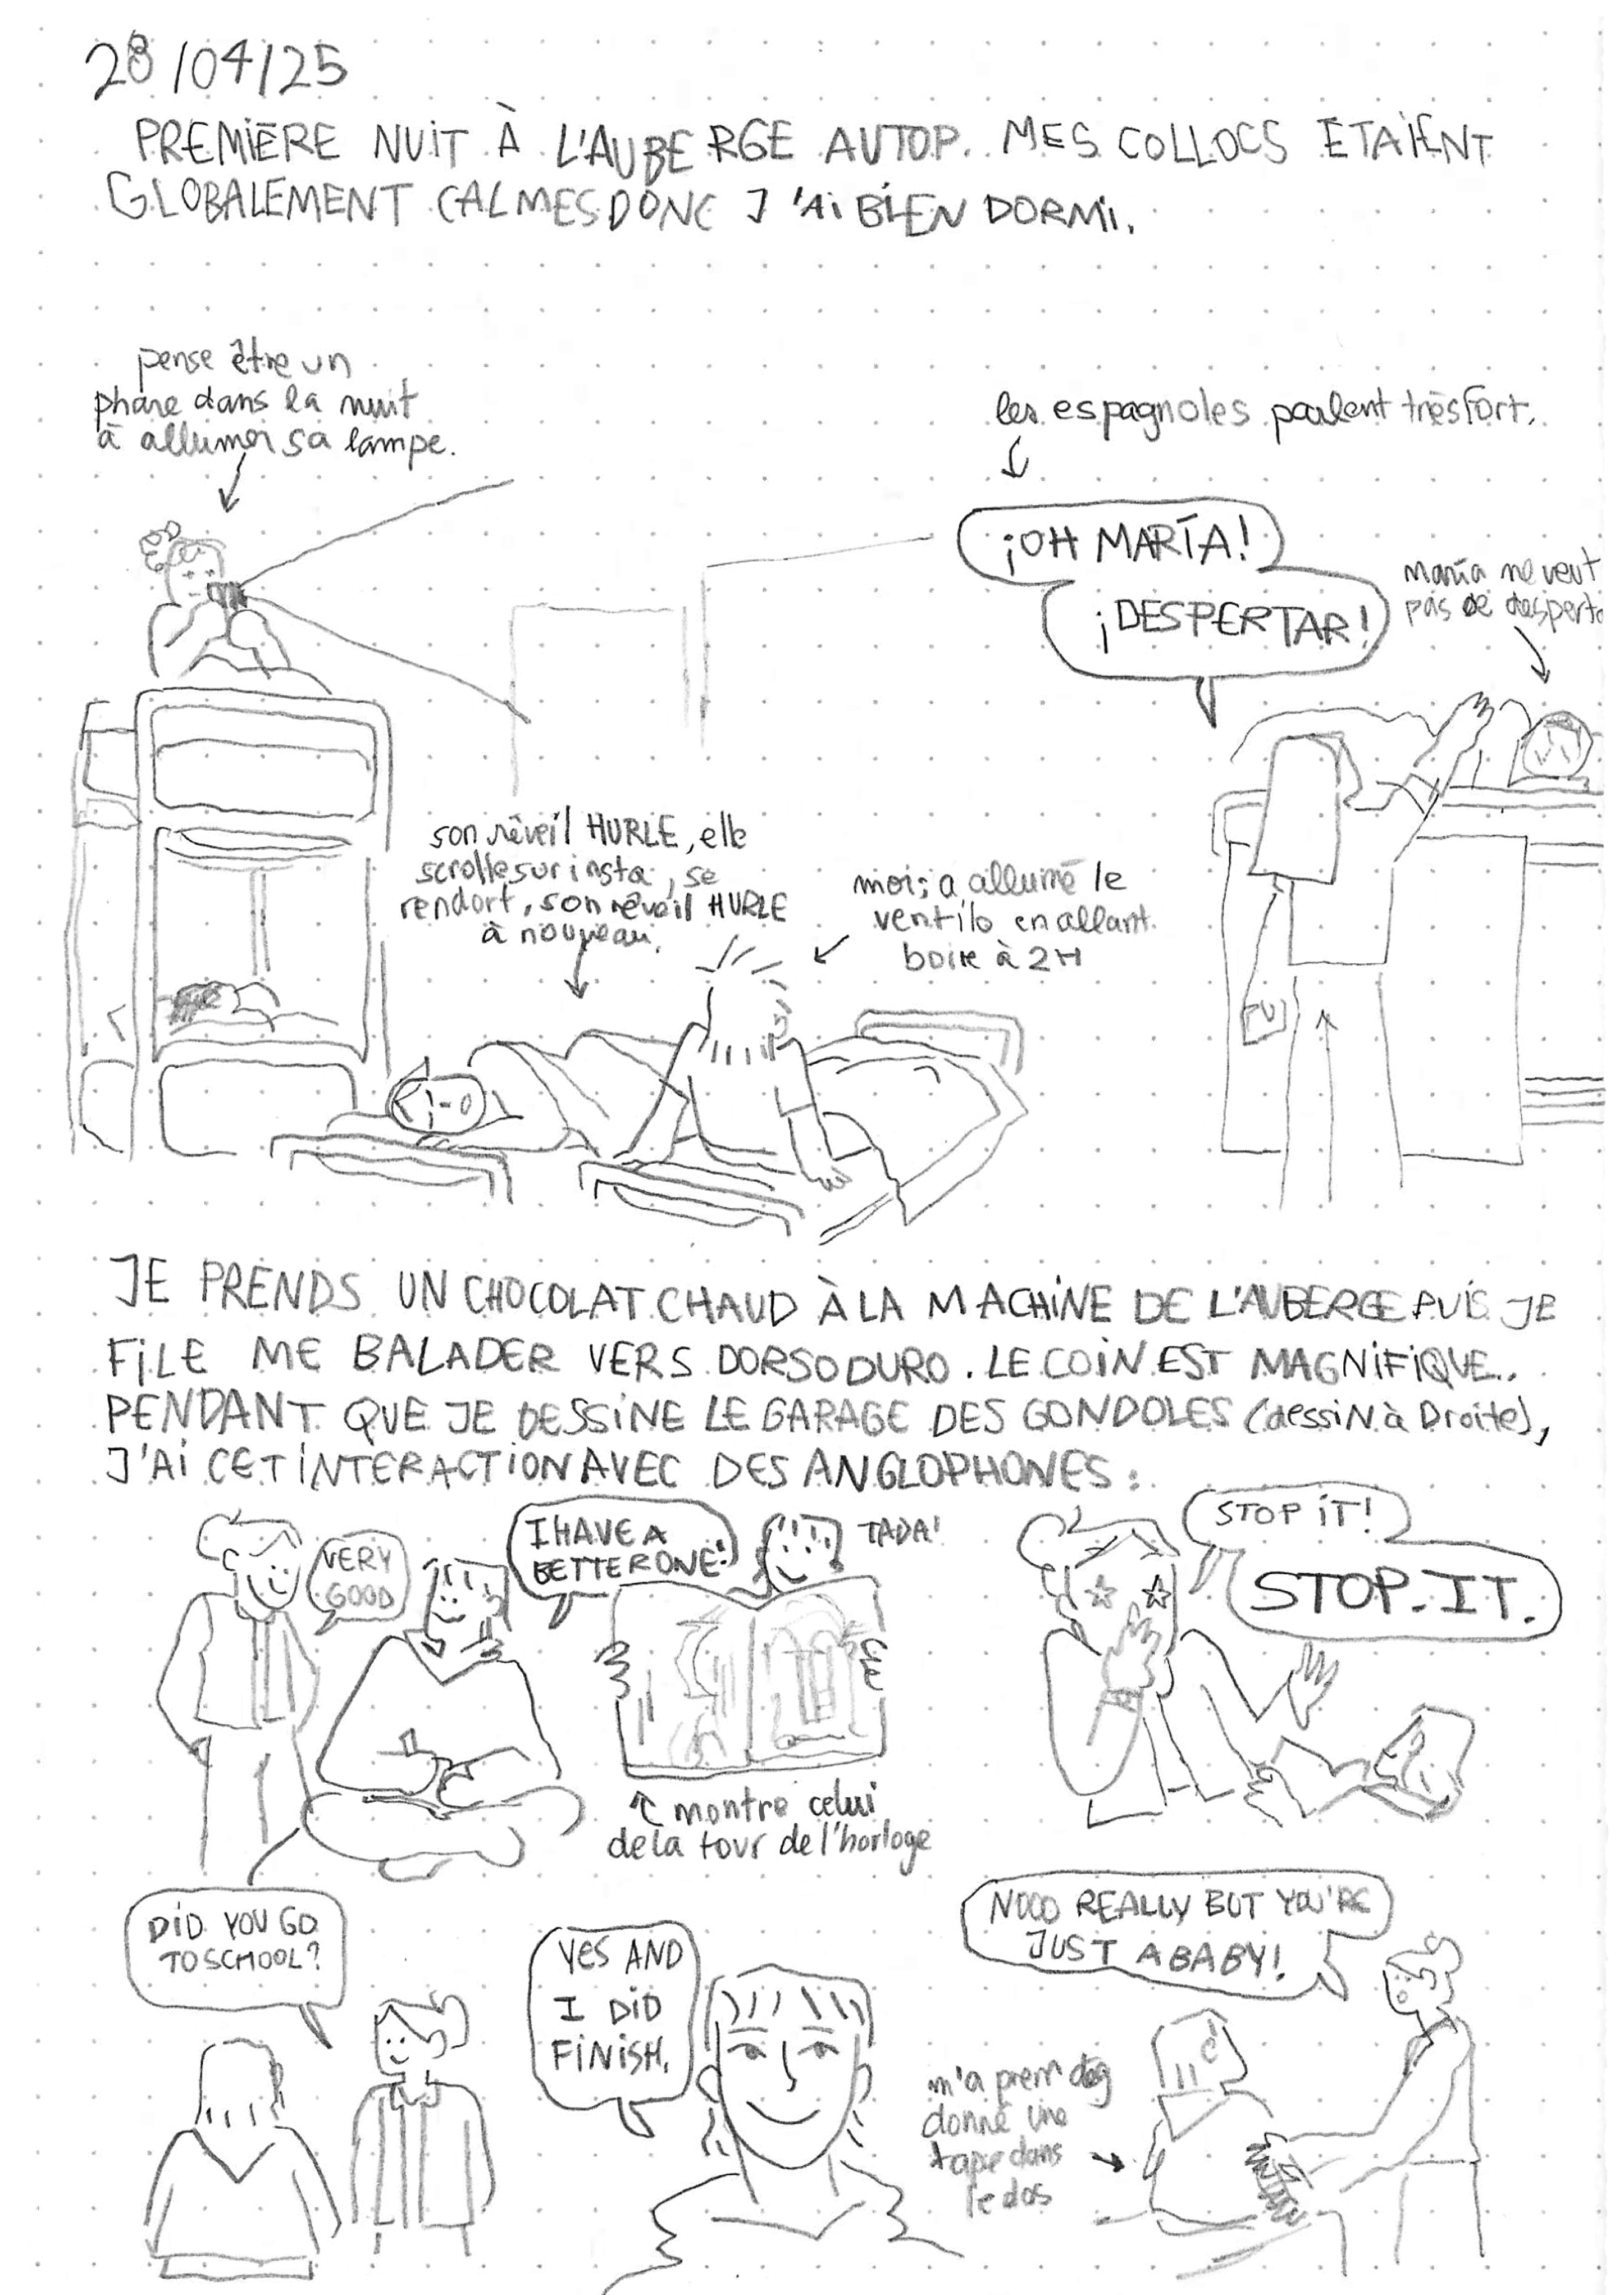 28/04/25
PREMIÈRE NUIT À L'AUBERGE AUTOP. MES COLLOCS ETAIENT
GLOBALEMENT CALMES DONC J'AI BIEN DORMI.
pense être un
phare dans la nuit
à allumer sa lampe.
les espagnoles parlent très fort.
¡OH MARÍA!
¡DESPERTAR!
maría ne veut
pas se desperta
son réveil HURLE, elle
scrolle sur insta, se
rendort, son réveil HURLE
à nouveau.
moi; a allumé le
ventilo en allant
boire à 2H
JE PRENDS UN CHOCOLAT CHAUD À LA MACHINE DE L'AUBERGE PUIS JE
FILE ME BALADER VERS DORSODURO. LE COIN EST MAGNIFIQUE.
PENDANT QUE JE DESSINE LE GARAGE DES GONDOLES (dessin à Droite),
J'AI CET INTERACTION AVEC DES ANGLOPHONES:
VERY
GOOD
I HAVE A
BETTER ONE!
TADA!
STOP IT!
STOP. IT.
montre celui
de la tour de l'horloge
DID YOU GO
TO SCHOOL?
YES AND
I DID
FINISH.
NOOO REALLY BUT YOU'RE
JUST A BABY!
m'a prem deg
donné une
tape dans
le dos